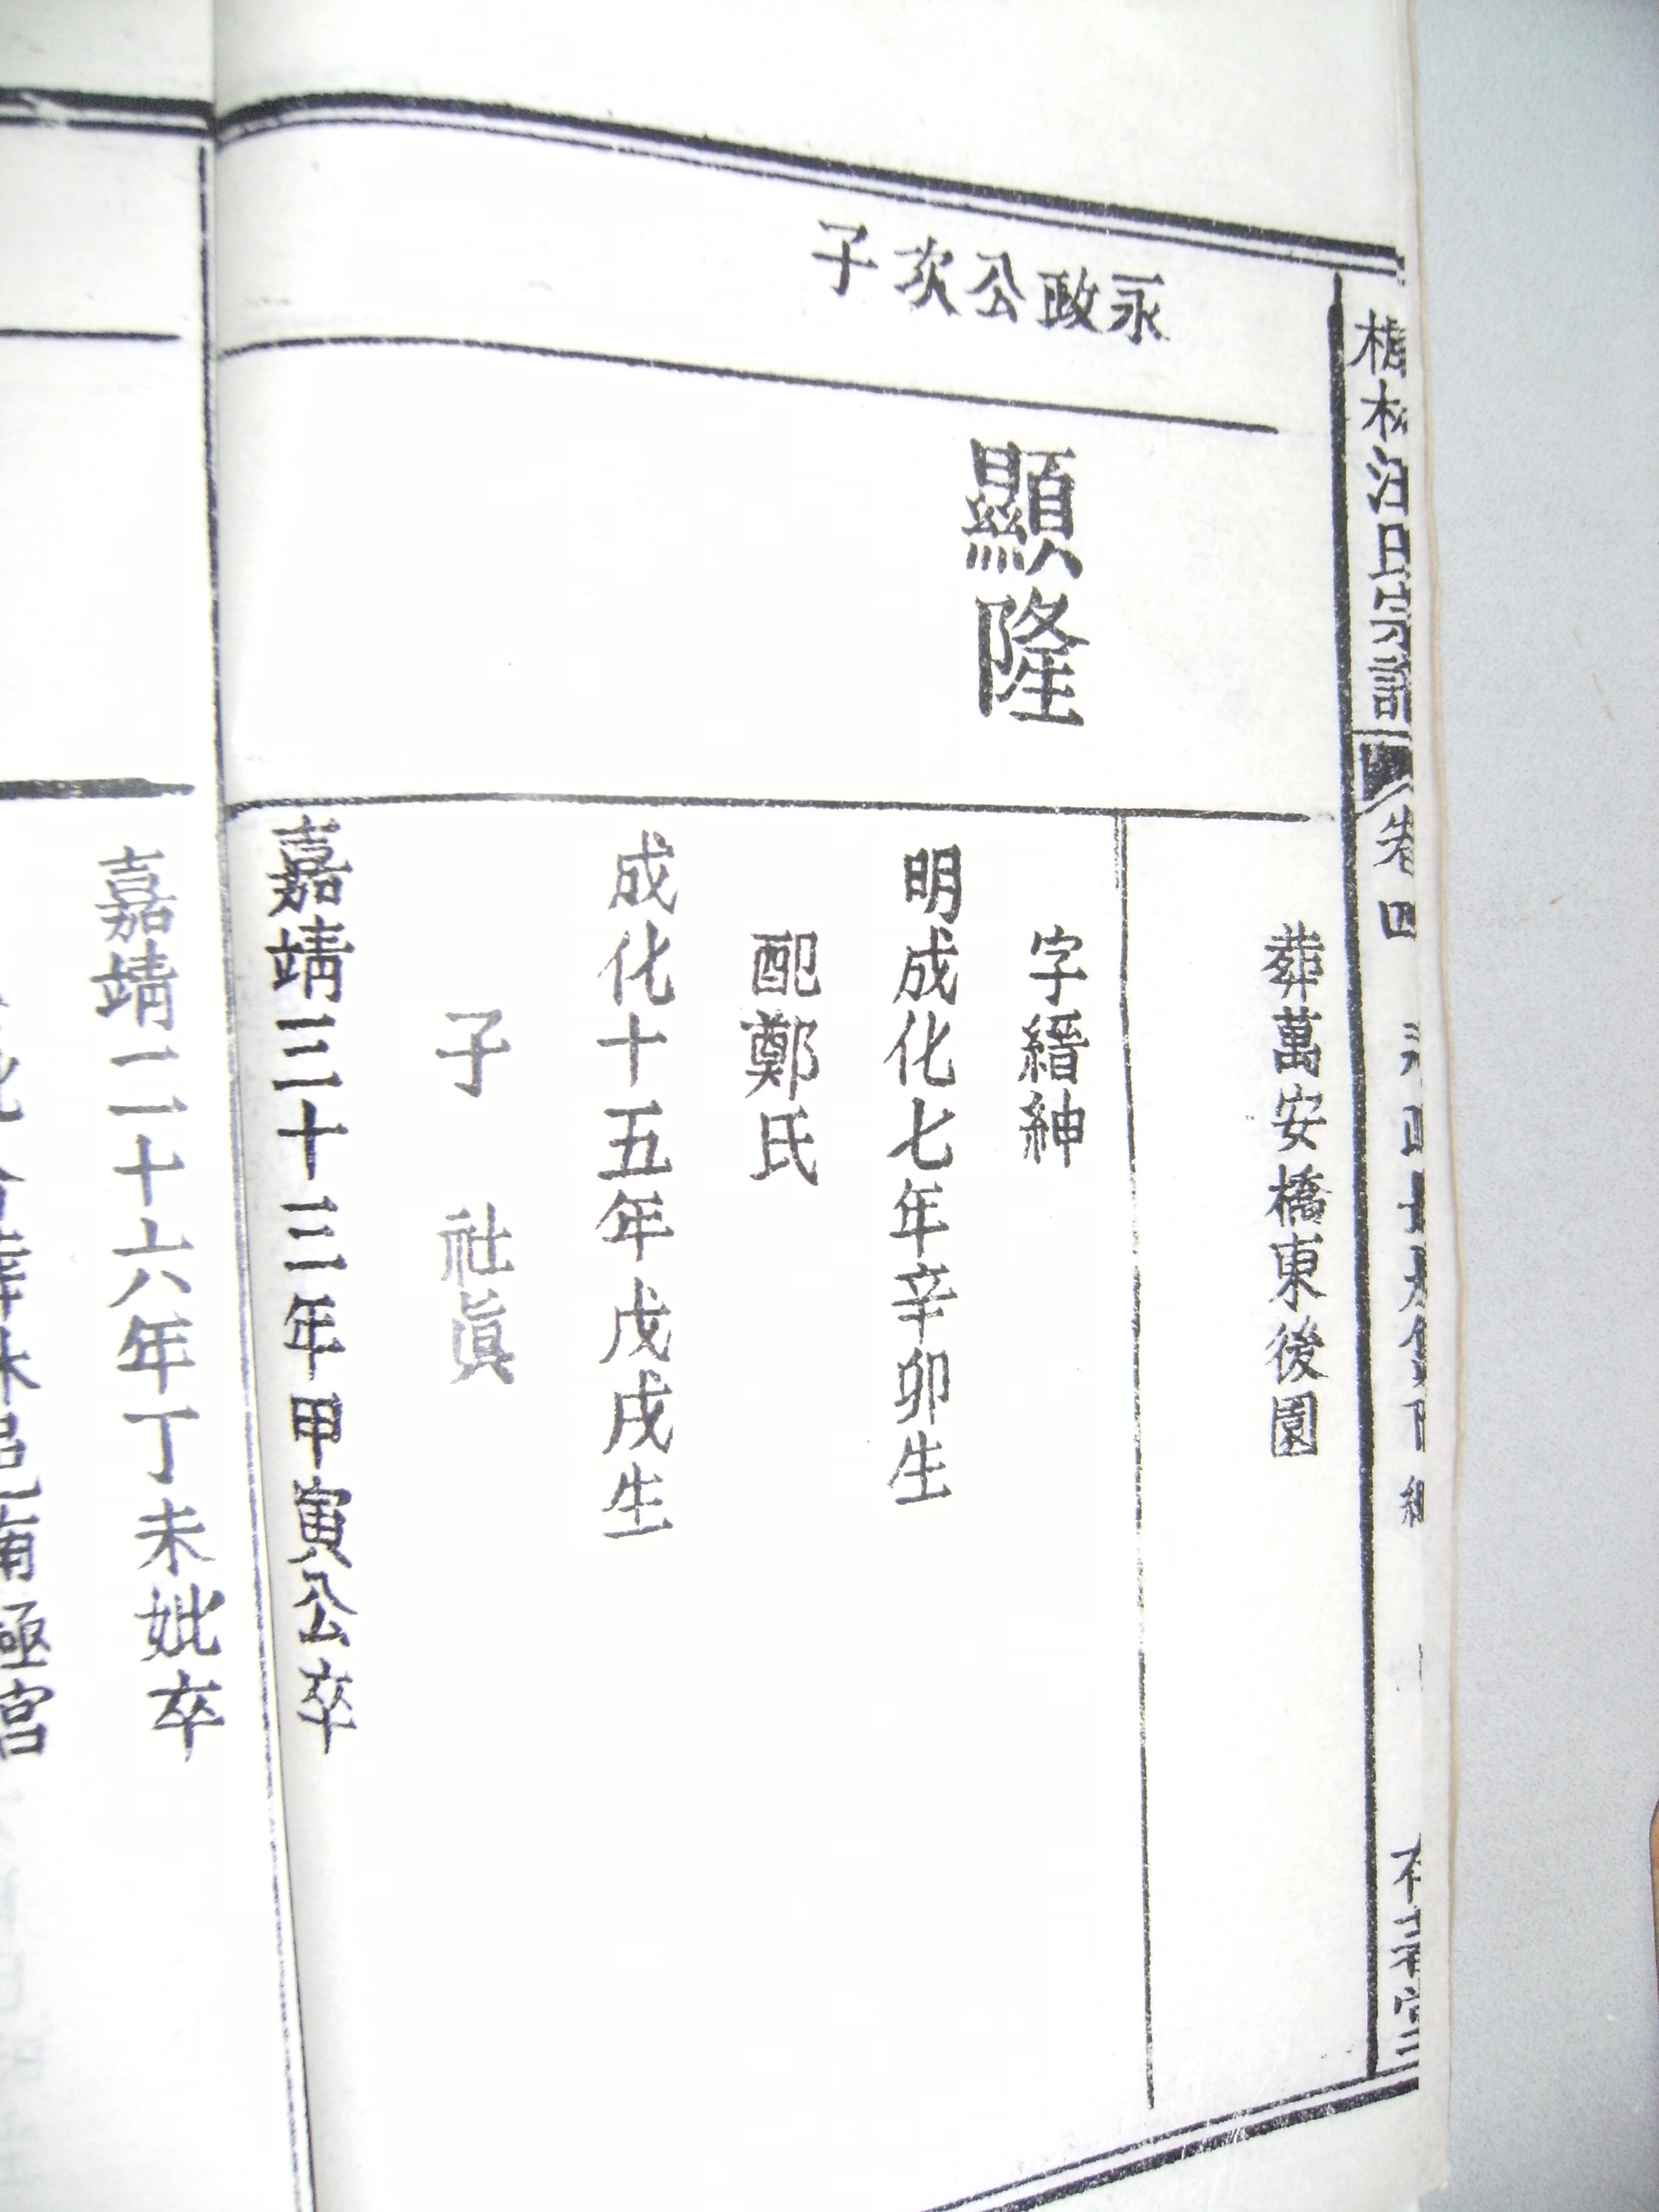 卷四
葬萬安橋東後園
永政公次子
顯隆
字縉紳
明成化七年辛卯生
配鄭氏
成化十五年戊戌生
子 社眞
嘉靖三十三年甲寅公卒
嘉靖二十六年丁未妣卒
極宮